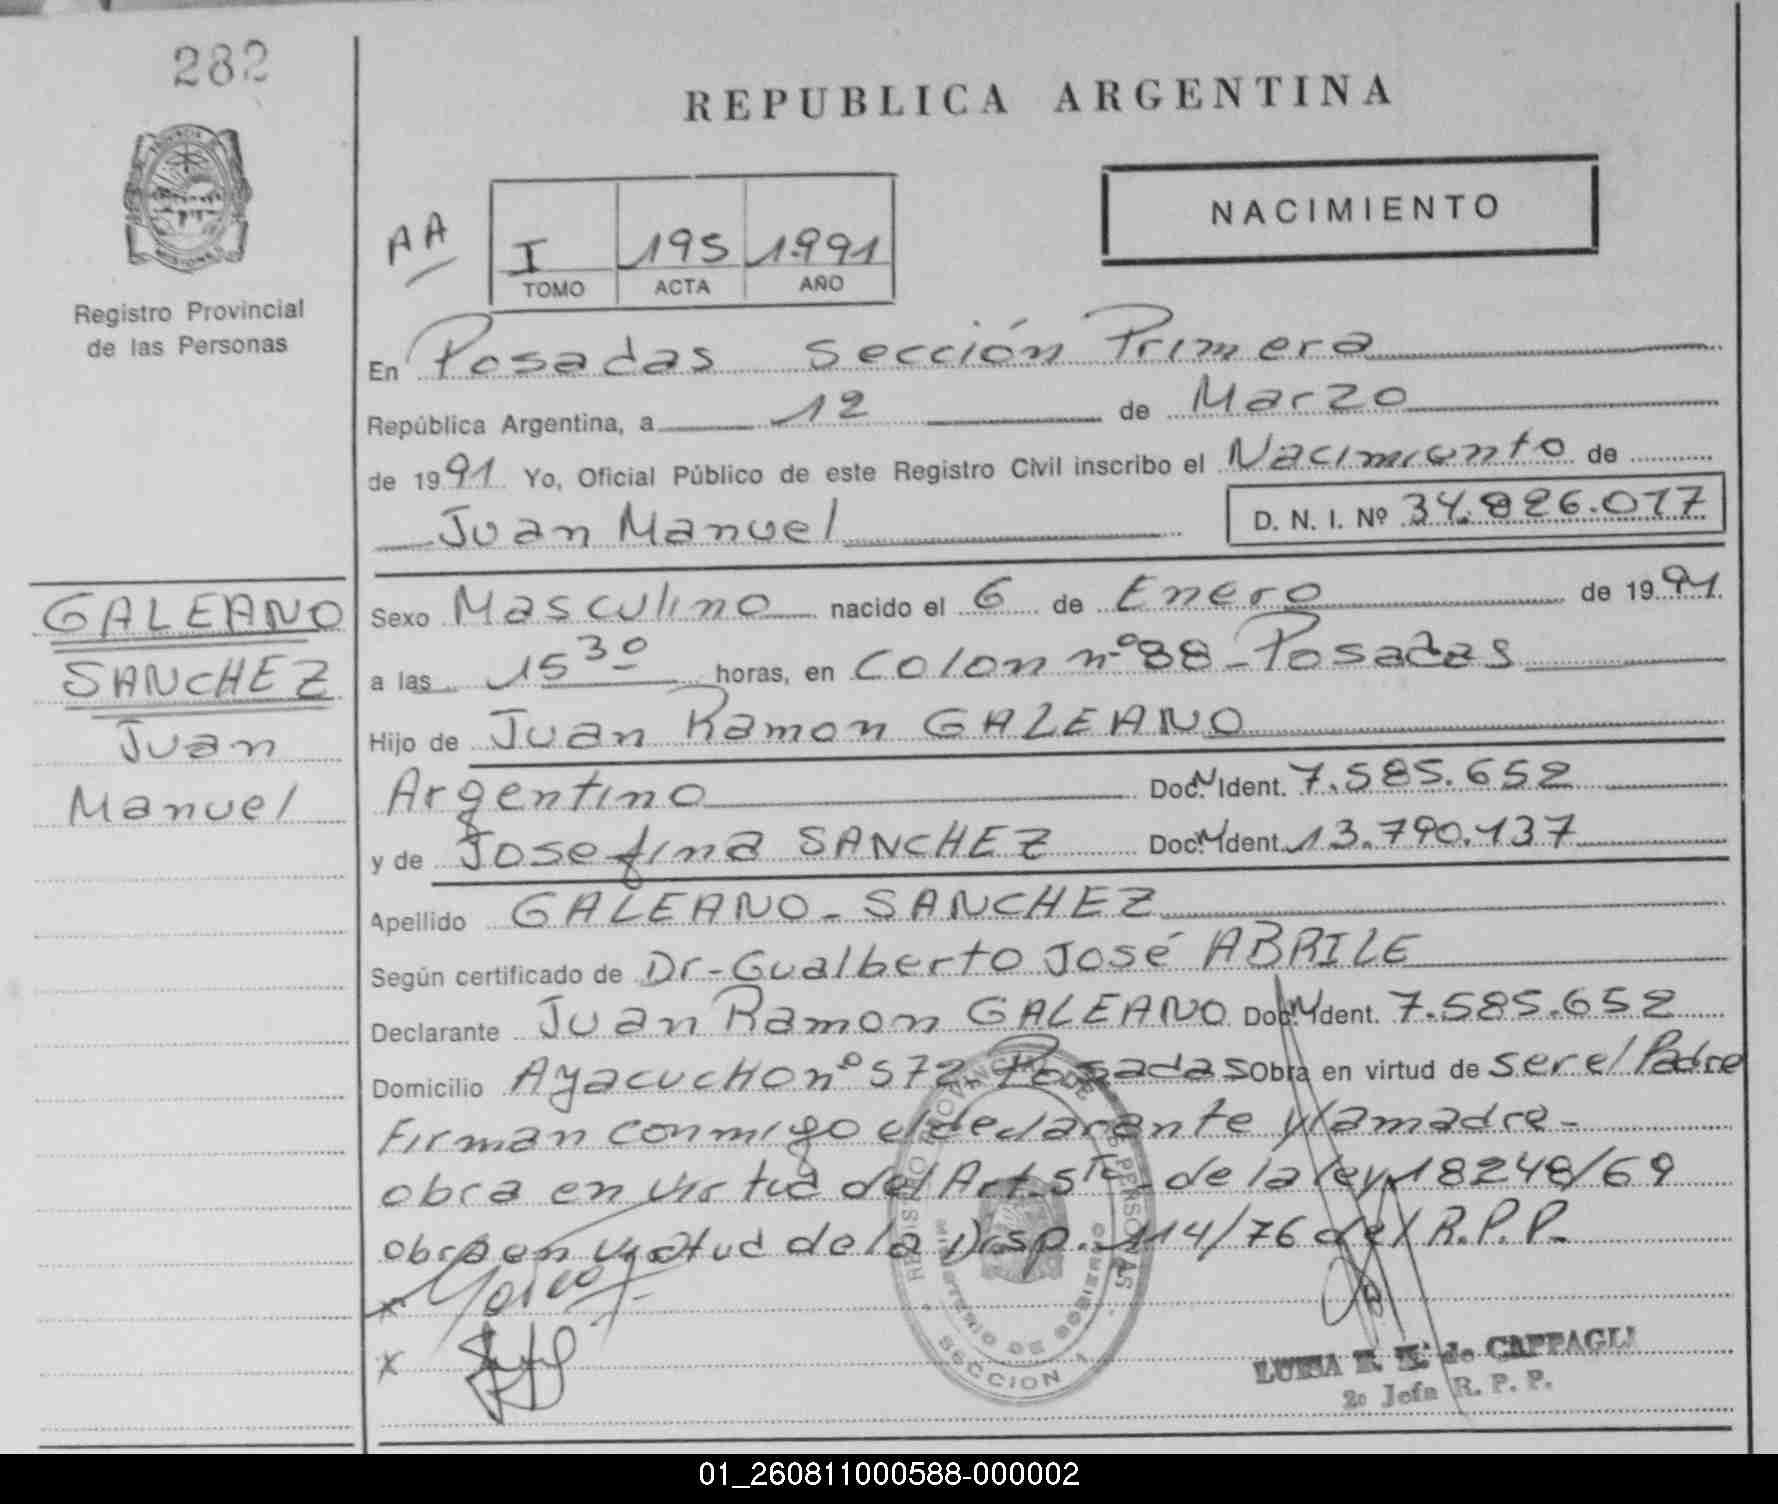 282
REPUBLICA ARGENTINA
PROVINCIA DE MISIONES
Registro Provincial
de las Personas
AA
I 195 1.991
TOMO ACTA AÑO
NACIMIENTO
En Posadas Sección Primera
República Argentina, a 12 de Marzo
de 1991 Yo, Oficial Público de este Registro Civil inscribo el Nacimiento de
Juan Manuel D. N. I. Nº 34.826.077
GALEANO
SANCHEZ
Juan
Manuel
Sexo Masculino nacido el 6 de Enero de 1991
a las 15 30 horas, en Colon nº 88 - Posadas
Hijo de Juan Ramon GALEANO
Argentino Doc. N Ident. 7.585.652
y de Josefina SANCHEZ Doc. N Ident. 13.790.137
Apellido GALEANO - SANCHEZ
Según certificado de Dr - Gualberto José ABRILE
Declarante Juan Ramon GALEANO Doc. N Ident. 7.585.652
Domicilio Ayacucho nº 572 - Posadas Obra en virtud de ser el Padre
Firman conmigo el declarante y la madre -
obra en virtud del Art. 5to - de la ley 18248/69
obra en virtud de la Disp. 114/76 del R.P.P.
x
x
REGISTRO PROVINCIAL DE LAS PERSONAS
MINISTERIO DE GOBIERNO
SECCION 1
LUISA de CAPPAGLI
2º Jefa R. P. P.
01_260811000588-000002